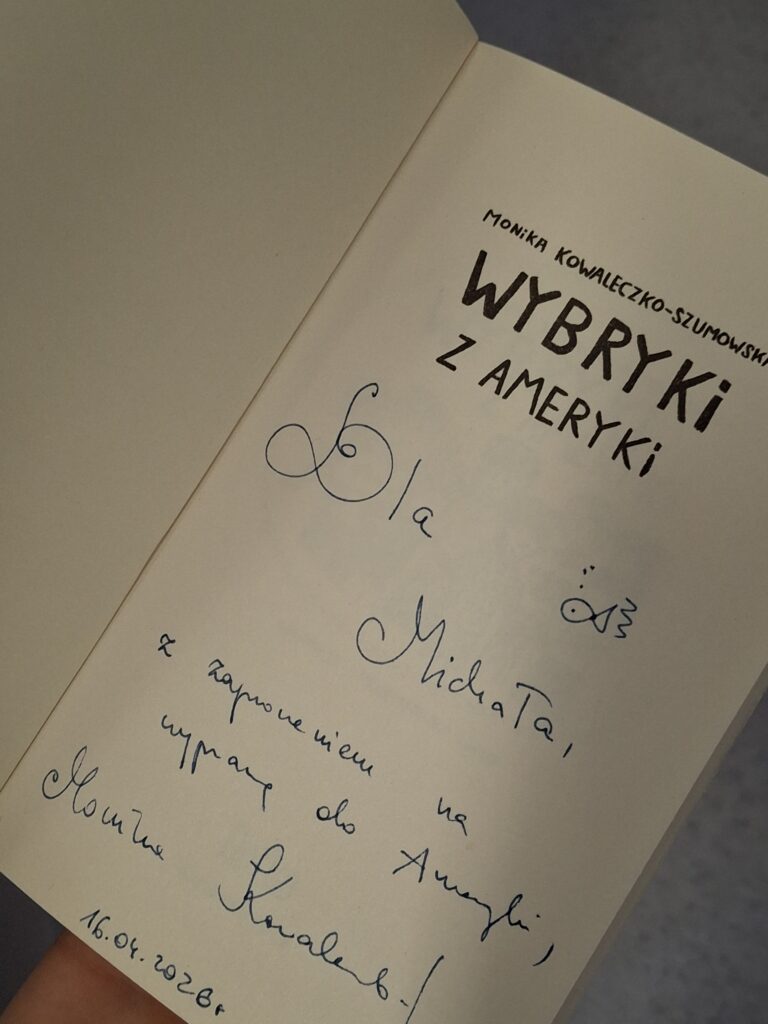 MONIKA KOWALECZKO-SZUMOWSKA
WYBRYKI
Z AMERYKI
Dla
Michała,
z zaproszeniem na
wyprawę do Ameryki,
Monika Kowaleczko-
16.04.2026r